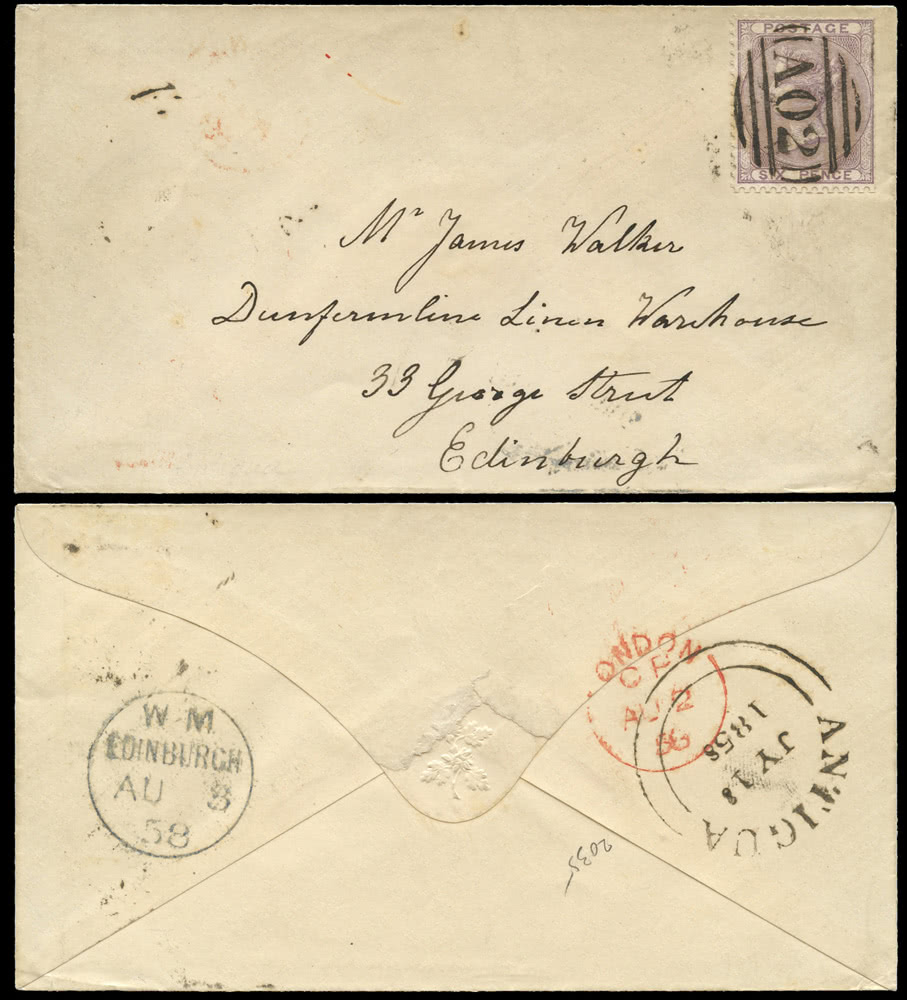 POSTAGE
A02
SIX PENCE
Mr James Walker
Dunfermline Linen Warehouse
33 George Street
Edinburgh
LONDON
CF
AU 2
58
W M
EDINBURGH
AU 3
58
ANTIGUA
JY 13
1858
2035